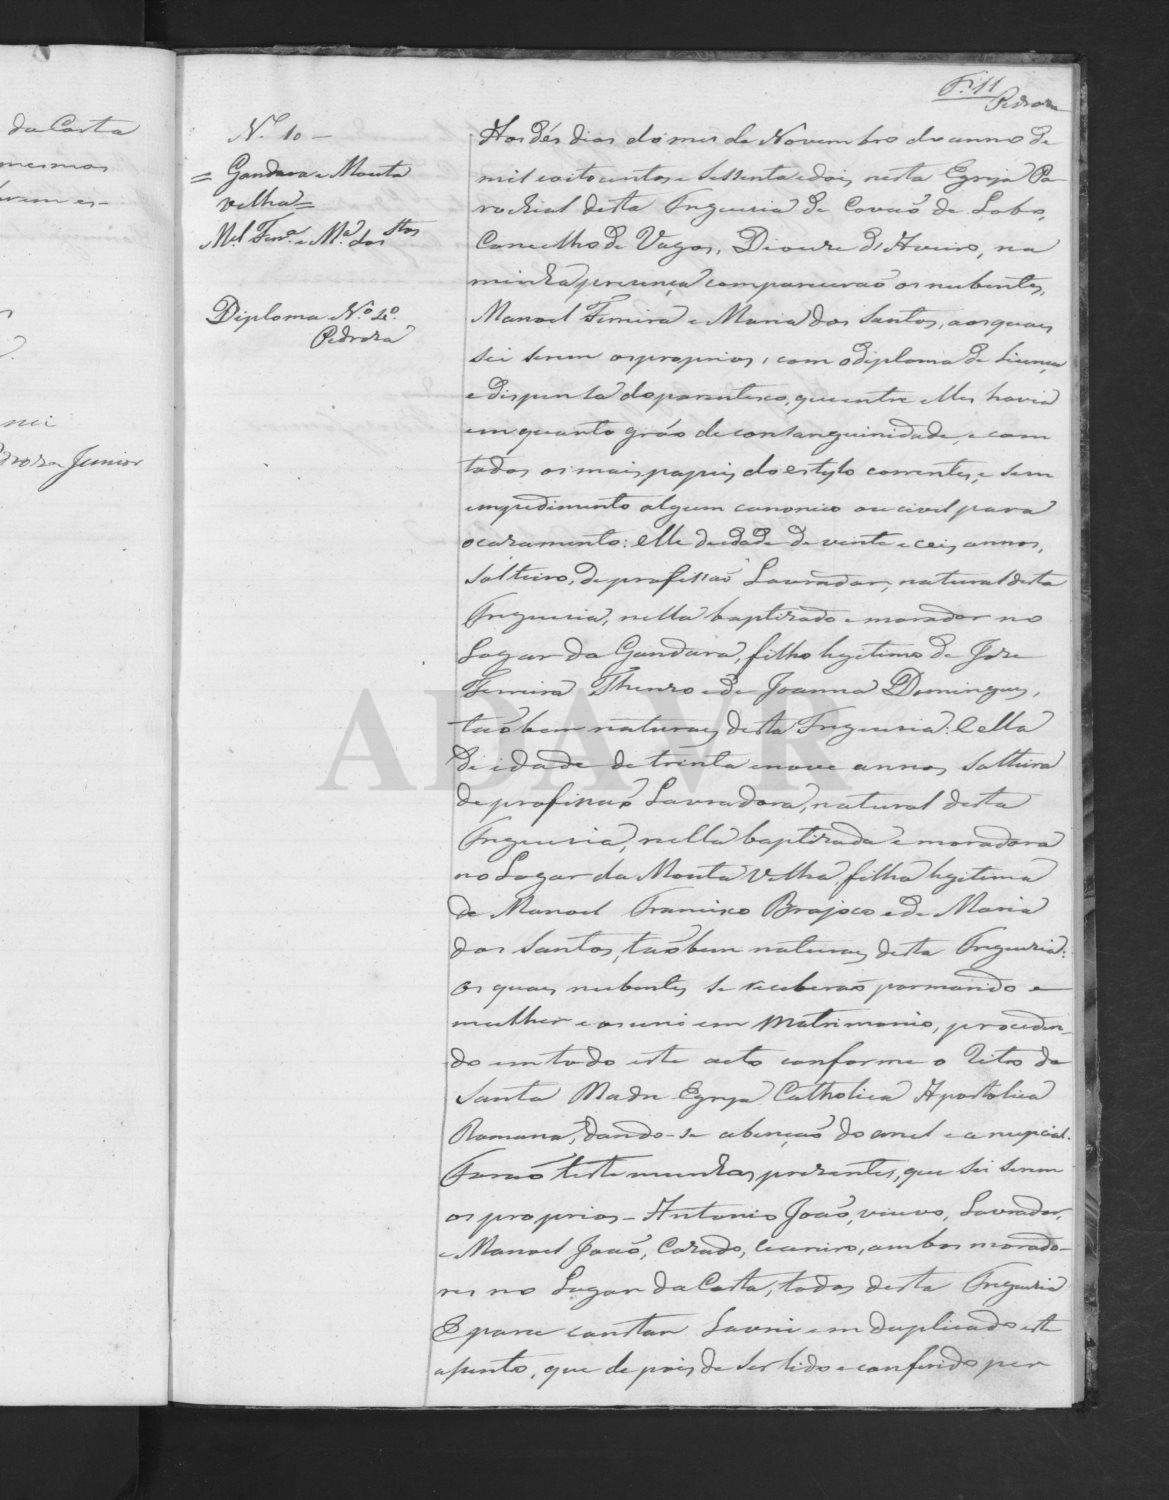 da Costa
mesmos
nei
Junior
F. 11
Pedroza
N.º 10 –
= Gandara e Mouta
velha =
Mel Ferrª. e Mª. dos Stos
Diploma N.º 4º.
Pedroza
Aos dés dias do mes de Novembro do anno de
mil oitocentos e sessenta e dois, nesta Egreja Pa-
rochial desta Freguesia de Covaõ do Lobo,
Concelho de Vagos, Diocese d'Aveiro, na
minha presença compareceraõ os nubentes,
Manoel Ferreira e Maria dos Santos, aos quaes
sei serem os proprios, com o diploma de Licença
e dispensa do parentesco, que entre elles havia
em quarto gráo de consanguinidade, e com
todos os mais papeis do estylo correntes, e sem
impedimento algum canonico ou civil para
o casamento: elle de edade de vinte e ceis annos,
solteiro, de profissaõ Lavrador, natural desta
Freguesia, nella baptizado e morador no
Lugar da Gandara, filho legitimo de Joze
Ferreira e de Joanna Domingues,
taõbem naturaes desta Freguesia: e ella
de idade de trinta e nove annos solteira
de profissaõ Lavradora, natural desta
Freguesia, nella baptizada e moradora
no Lugar da Mouta Velha, filha legitima
de Manoel Francisco Brajoco e de Maria
dos Santos, taõbem naturaes desta Freguesia:
os quaes nubentes se receberaõ por marido e
mulher e os uni em Matrimonio, proceden-
do em todo este acto conforme o Rito da
Santa Madre Egreja Catholica Apostolica
Romana, dando-se a bençaõ do anel e a nupcial.
Foraõ testemunhas prezentes, que sei serem
os proprios – Antonio Joaõ, viuvo, Lavrador,
e Manoel Joaõ, Cazado, ambos morado-
res no Lugar da Costa, todos desta Freguesia
E para constar Lavrei em duplicado este
assento, que depois de ser lido e conferido per
ADAVR